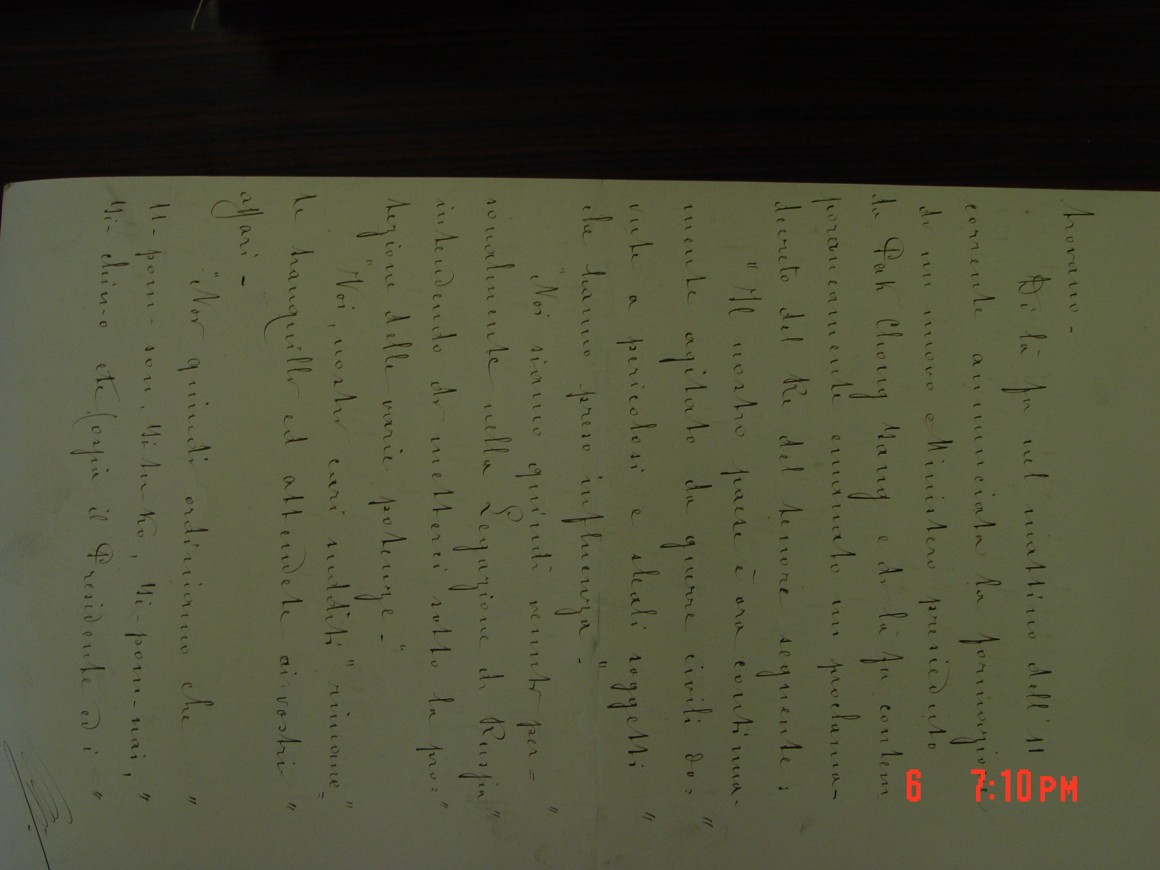 trovano -
Di là fu nel mattino dell'11
corrente annunciata la formazione
di un nuovo Ministero presieduto
da Pak Chong Yang e di là fu contem
poraneamente emanato un proclama-
decreto del Re del tenore seguente:
"Il nostro paese è ora continua-
mente agitato da guerre civili do= "
vute a pericolosi e sleali soggetti "
che hanno preso influenza - "
"Noi siamo quindi venuti per= "
sonalmente nella Legazione di Russia "
intendendo di metterci sotto la pro= "
tezione delle varie potenze - "
"Voi, nostri cari sudditi "rimane= "
te tranquilli ed attendete ai vostri "
affari -
"Noi quindi ordiniamo che "
U-pom-son, Yi-pom-nai, "
Yi- chin-o etc (ossia il Presidente ed i "
6 7:10 PM